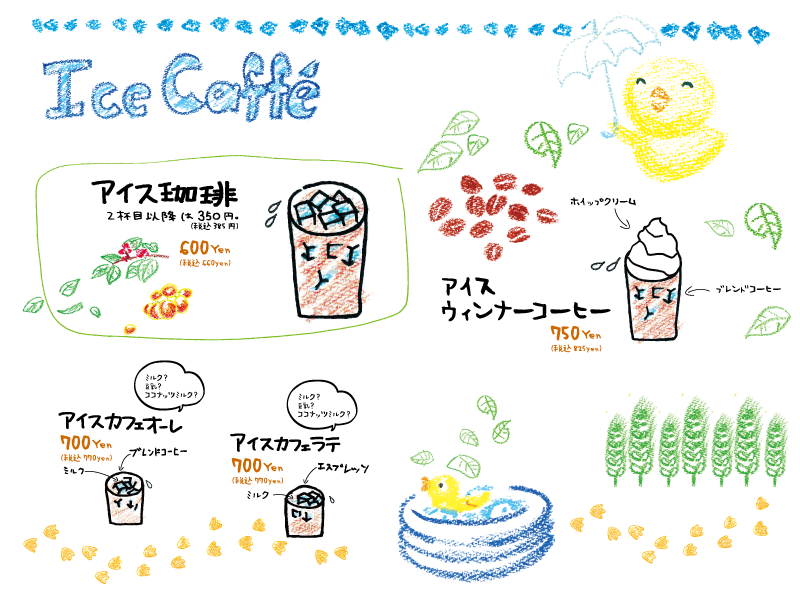 Ice Caffé
アイス珈琲
2杯目以降は350円。
(税込385円)
600Yen
(税込660yen)
ホイップクリーム
アイス
ウィンナーコーヒー
ブレンドコーヒー
750Yen
(税込825yen)
ミルク?
豆乳?
ココナッツミルク?
アイスカフェオーレ
700Yen
(税込770yen)
ブレンドコーヒー
ミルク
ミルク?
豆乳?
ココナッツミルク?
アイスカフェラテ
700Yen
(税込770yen)
エスプレッソ
ミルク